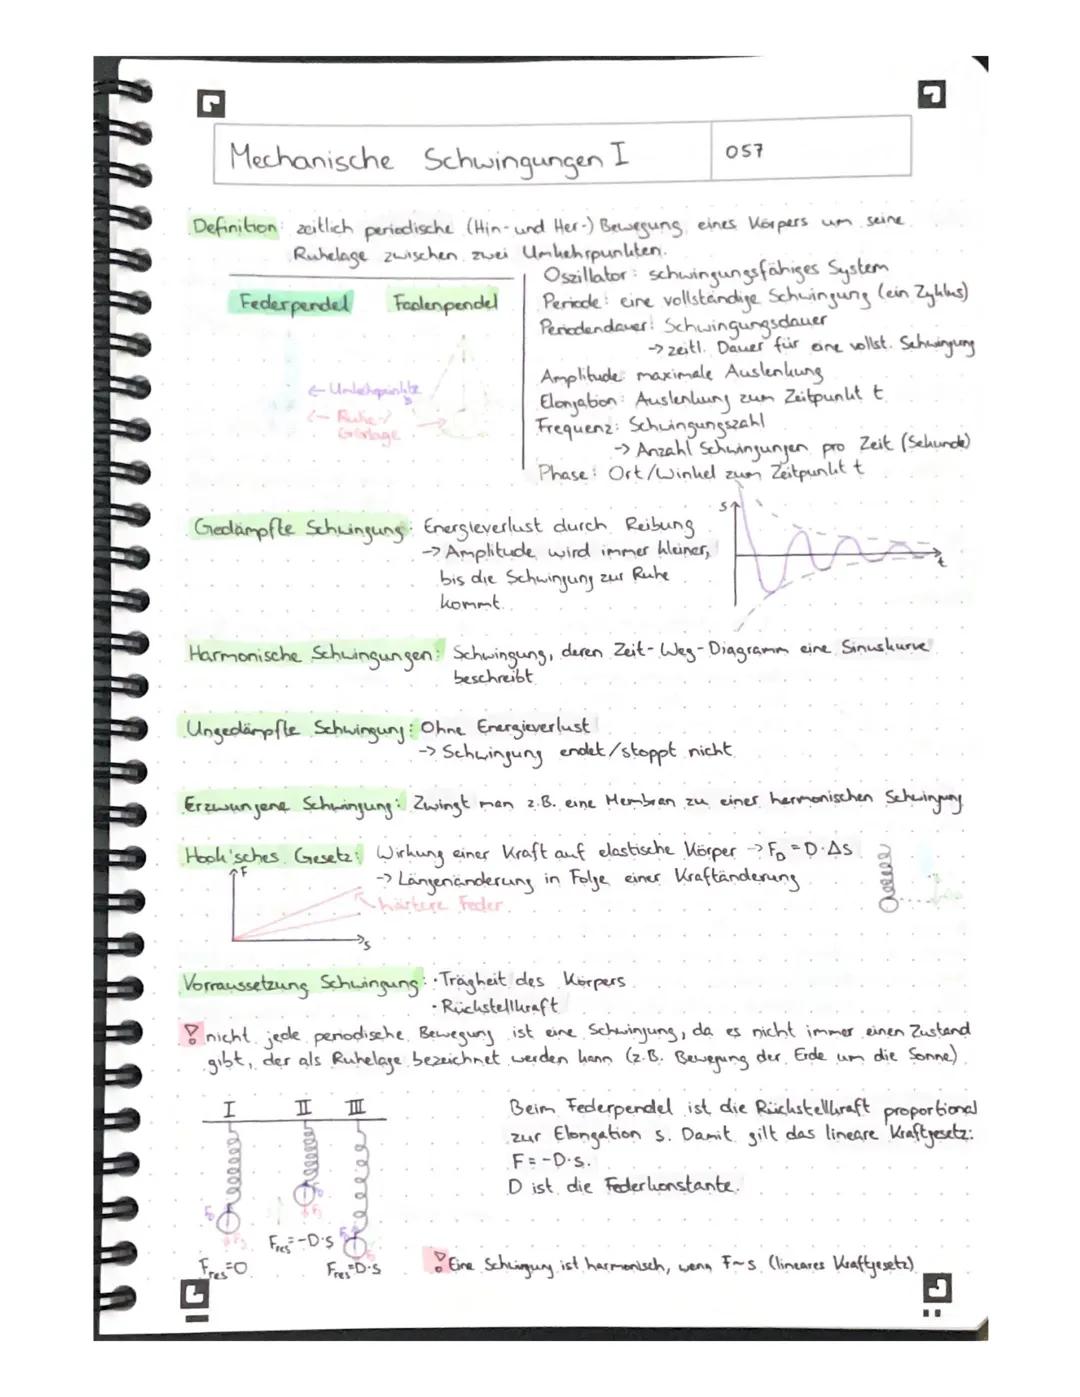 Mechanische Schwingungen I
057
Definition: zeitlich periodische (Hin- und Her-) Bewegung eines Körpers um seine
Ruhelage zwischen zwei Umkehrpunkten.
Federpendel
Fadenpendel
← Umkehrpunkte
← Ruhe-/
Gleichgewichtslage
Oszillator: schwingungsfähiges System
Periode: eine vollständige Schwingung (ein Zyklus)
Periodendauer: Schwingungsdauer
→ zeitl. Dauer für eine vollst. Schwingung
Amplitude: maximale Auslenkung
Elongation: Auslenkung zum Zeitpunkt t
Frequenz: Schwingungszahl
→ Anzahl Schwingungen pro Zeit (Sekunde)
Phase: Ort/Winkel zum Zeitpunkt t
Gedämpfte Schwingung: Energieverlust durch Reibung
→ Amplitude wird immer kleiner,
bis die Schwingung zur Ruhe
kommt.
s
t
Harmonische Schwingungen: Schwingung, deren Zeit-Weg-Diagramm eine Sinuskurve
beschreibt
Ungedämpfte Schwingung: Ohne Energieverlust
→ Schwingung endet/stoppt nicht
Erzwungene Schwingung: Zwingt man z.B. eine Membran zu einer harmonischen Schwingung
Hook'sches Gesetz: Wirkung einer Kraft auf elastische Körper → F_D = D·Δs
→ Längenänderung in Folge einer Kraftänderung
F
härtere Feder
s
Vorraussetzung Schwingung: · Trägheit des Körpers
· Rückstellkraft
! nicht jede periodische Bewegung ist eine Schwingung, da es nicht immer einen Zustand
gibt, der als Ruhelage bezeichnet werden kann (z.B. Bewegung der Erde um die Sonne)
I II III
Beim Federpendel ist die Rückstellkraft proportional
zur Elongation s. Damit gilt das lineare Kraftgesetz:
F = -D·s.
D ist die Federkonstante.
F_res = 0
F_res = -D·s
F_res = D·s
! Eine Schwingung ist harmonisch, wenn F~s (lineares Kraftgesetz)